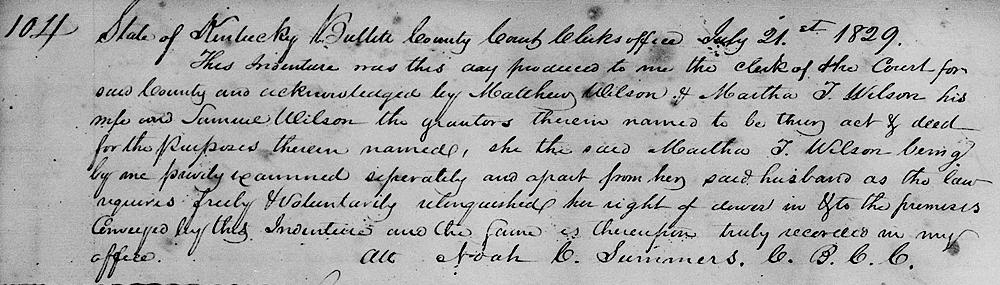 104 State of Kentucky Bullitt County Court Clerks office July 21.st 1829.
This Indenture was this day produced to me the clerk of the Court for
said County and acknowledged by Matthew Wilson & Martha T. Wilson his
wife and Samuel Wilson the grantors therein named to be their act & deed
for the purposes therein named, she the said Martha T. Wilson being
by me privily examined seperately and apart from her said husband as the law
requires freely & voluntarily relinquished her right of dower in & to the premises
Conveyed by this Indenture and the same is thereupon truly recorded in my
office. Att Noah C. Summers. C. B. C. C.